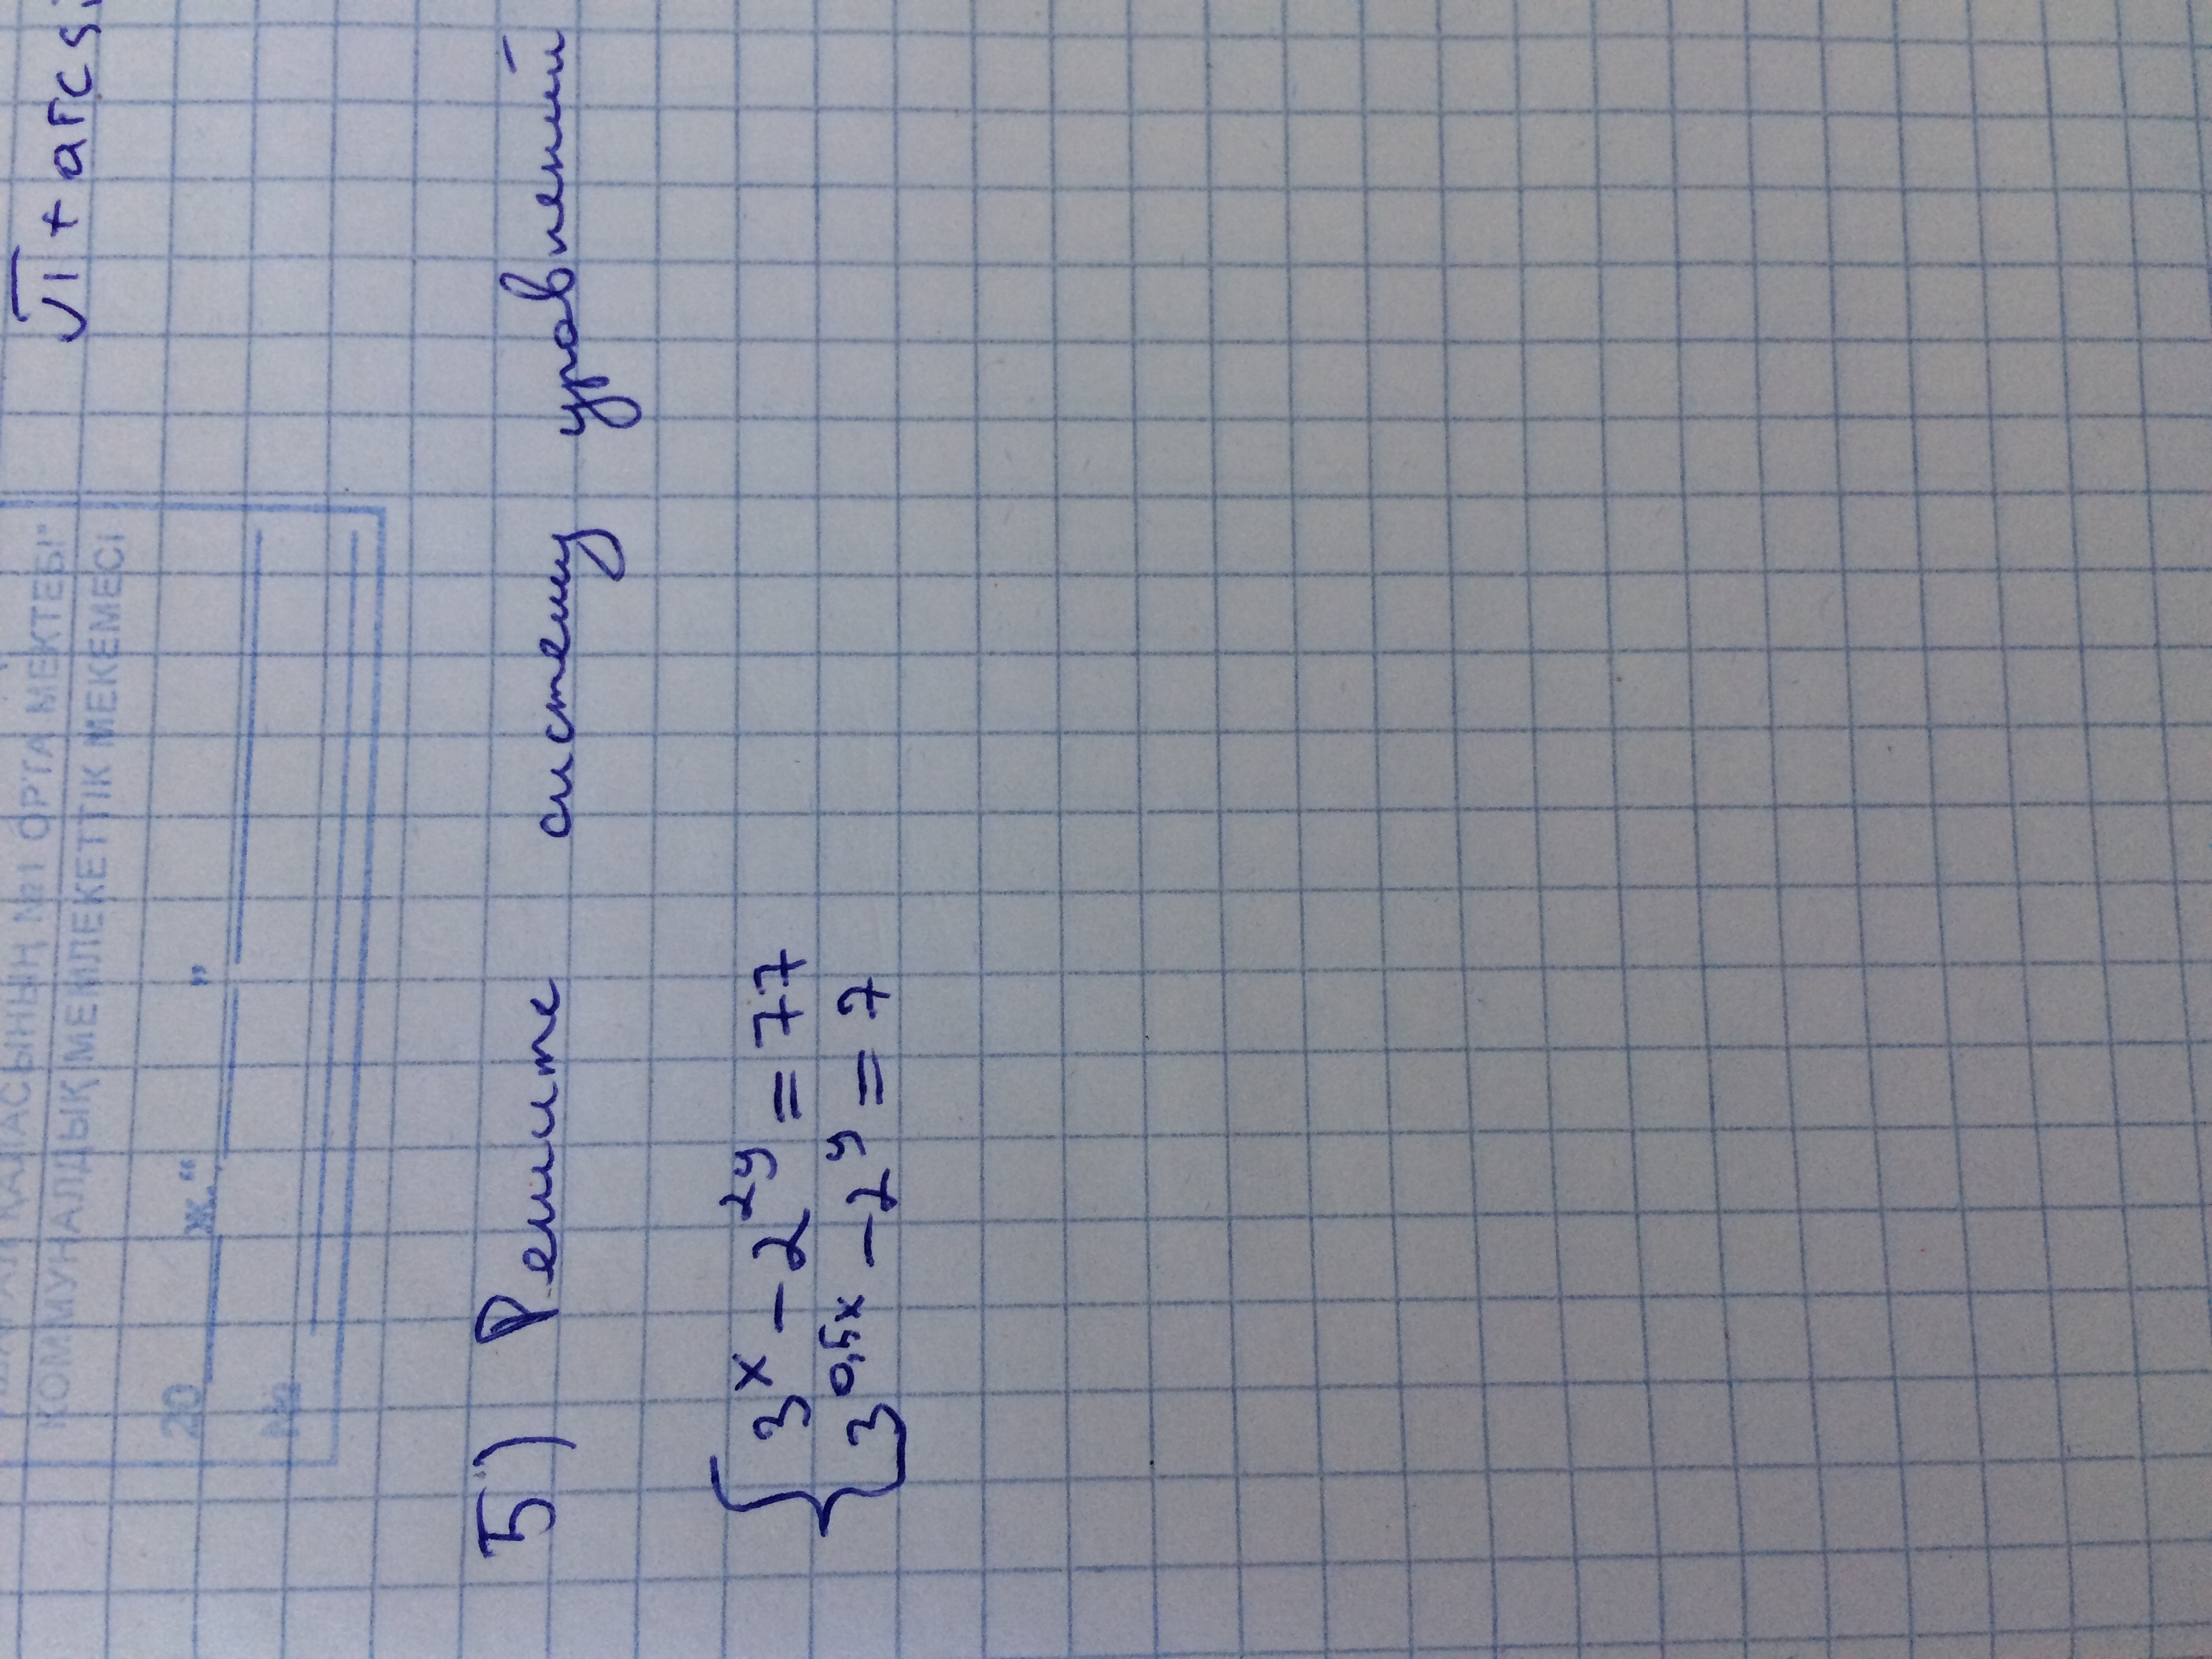 √1 + arcsi
ҚАЛАСЫНЫҢ №1 ОРТА МЕКТЕБІ"
КОММУНАЛДЫҚ МЕМЛЕКЕТТІК МЕКЕМЕСІ
20 ж. “ ”
№
5) Решите систему уравнений
3^x − 2^2y = 77
3^0,5x − 2^y = 7